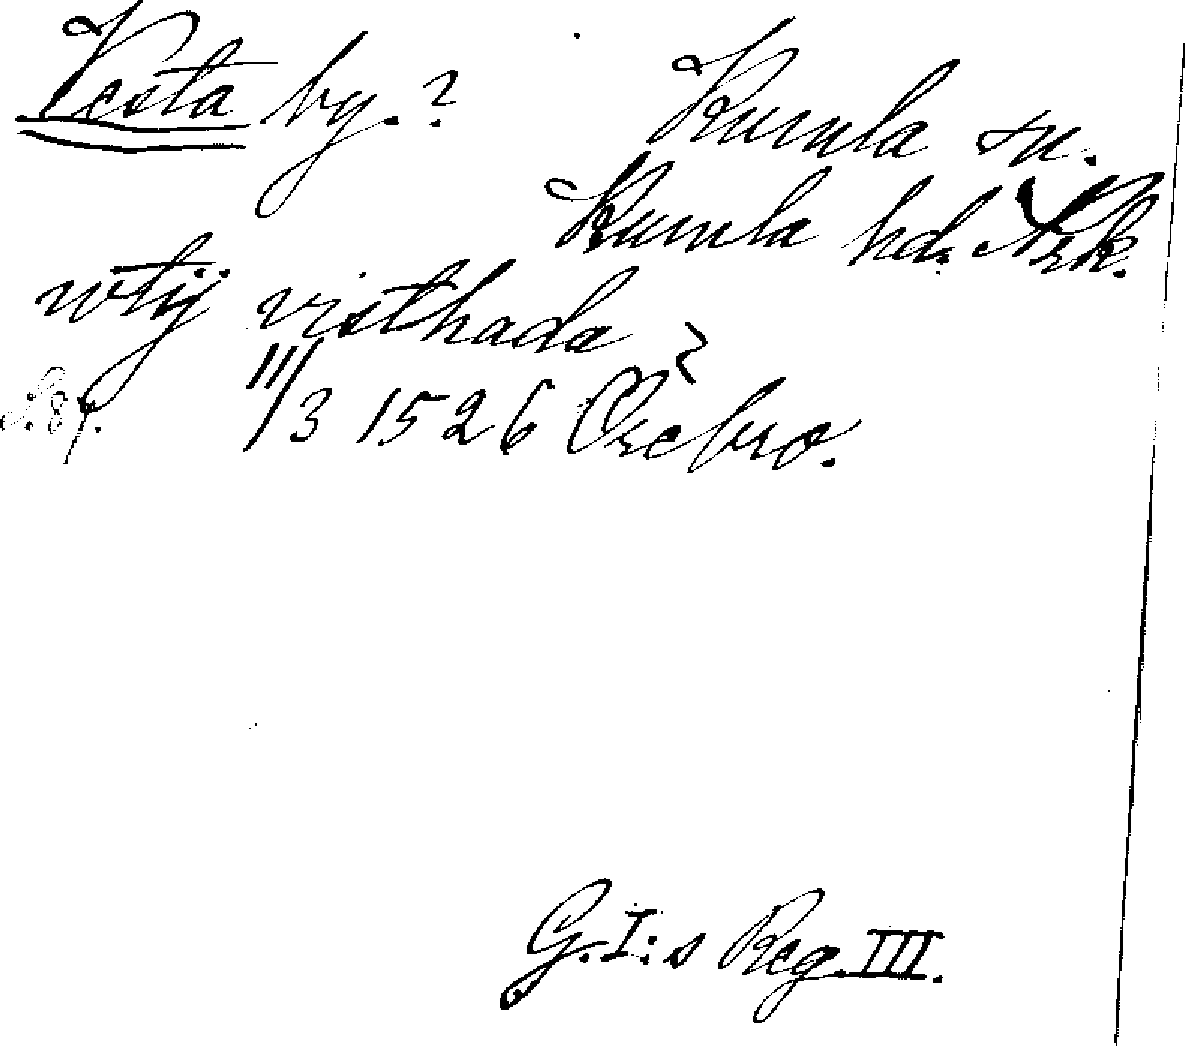 Vesta by.? Kumla sn.
Kumla hd. Nrk.
wtij visthada
S. 87. III/3 1526 Örebro.
G. I:s Reg. III.